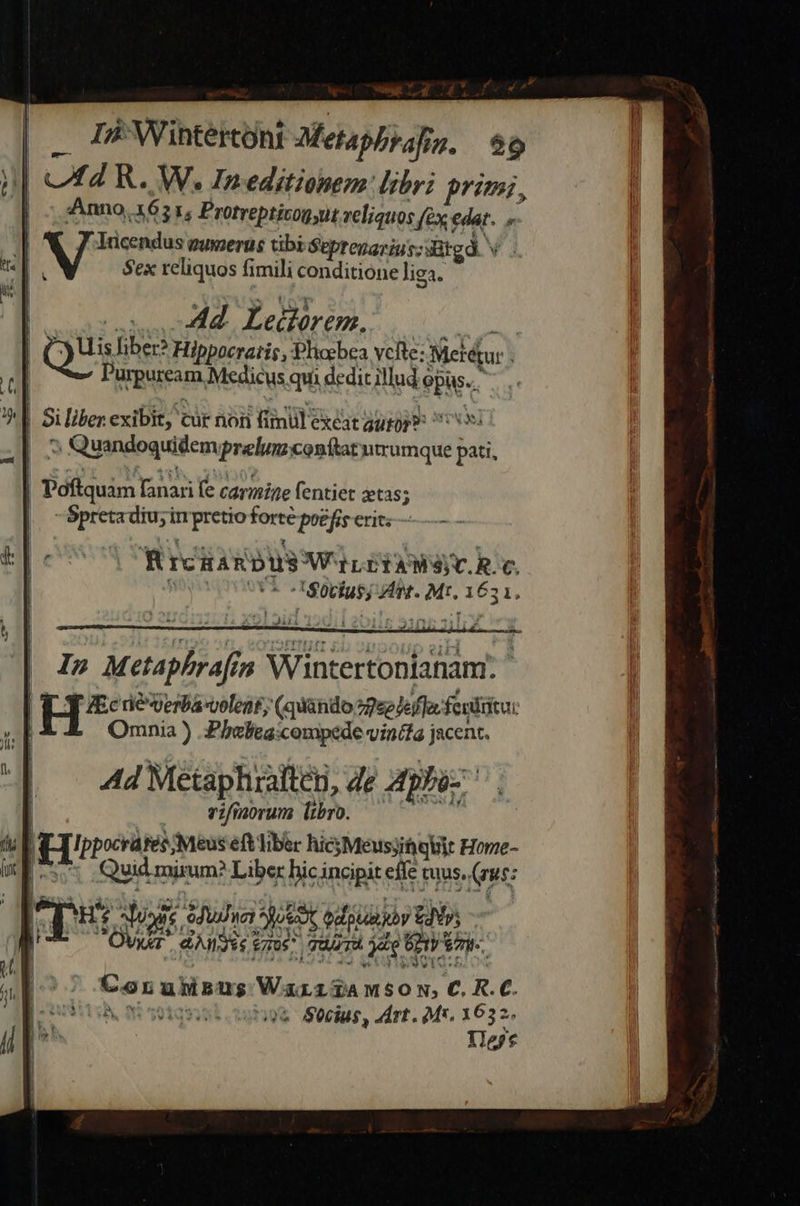 In Wintertoni Metaphrasin. 89
Ad R. W. In editionem libri primi,
Anno, 1631, Protrepticon, ut reliquos sex edat.
Vincendus numerus tibi Septenarius:
Sex reliquos simili conditione liga.
Ad Lectorem.
Quis liber? Hippocratis, Phœbea veste: Meretur
Purpuream, Medicus qui dedit illud opus.
Si liber exibit, cur non simul exeat autor?
Quandoquidem prelum constat utrumque pati,
Postquam sanari se carmine sentiet ætas;
Spreta diu, in pretio forte poësis erit.
Richardus Williams, C. R. C.
Socius, Art. Mr. 1631.
In Metaphrasin Wintertonianam.
Hæc ne verba volent, (quando
Omnia) Phebea compede vincta jacent.
Ad Metaphrasten, de Apho-
rismorum libro.
Hippocrates Meus est liber hic; Meus, inquit Home-
Quid mirum? Liber hic incipit esse tuus. (rus:
Cornelius Williamson, C. R. C.
Socius, Art. Mr. 1632.
Πρὸς